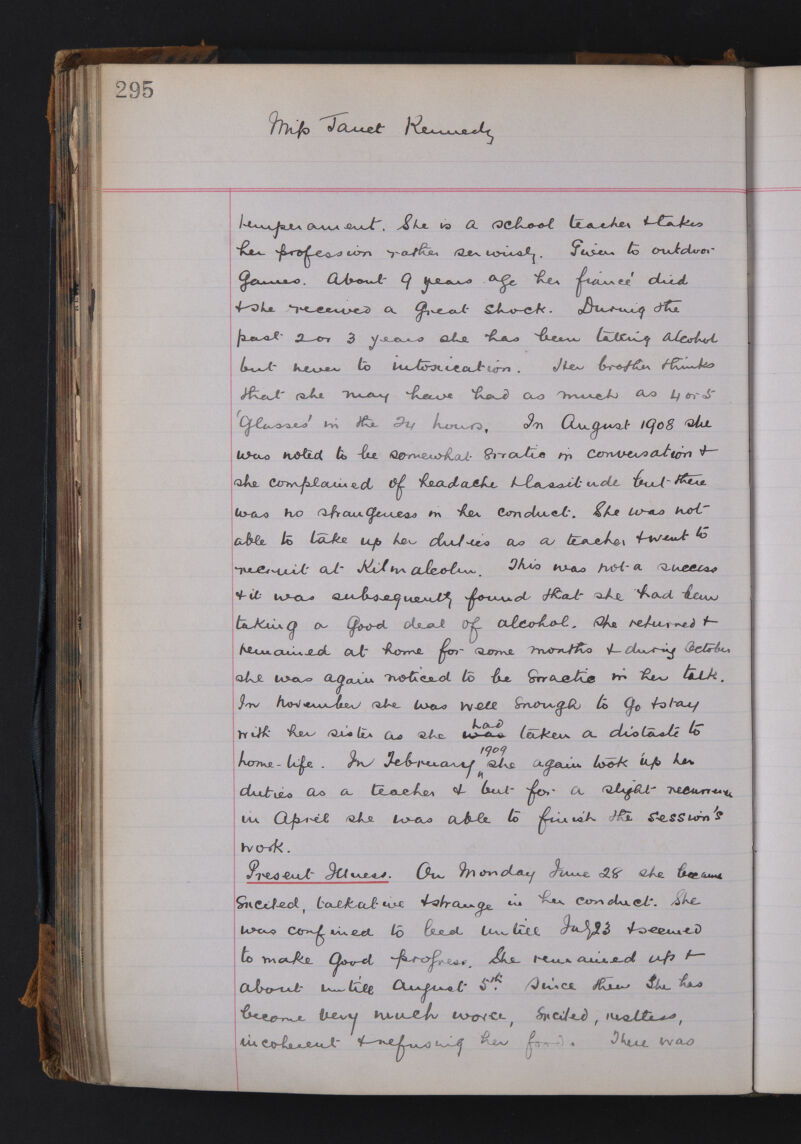 295
Miss Janet Kennedy
temperament. She is a school teacher & takes
her profession rather seriously. Given to outdoor
games. About 9 years ago her fiancé died
& she received a great shock. During the
past 2 or 3 years she has been taking alcohol
but never to intoxication. Her brother thinks
that she may have had as much as 4 or 5
'glasses' in the 24 hours. In August 1908 she
was noted to be somewhat erratic in conversation &
she complained of headache & lassitude but there
was no strangeness in her conduct. She was not
able to take up her duties as a teacher & went to
recruit at Kilmalcolm. This was not a success
& it was subsequently found that she had been
taking a good deal of alcohol. She returned &
remained at home for some months & during October
she was again noticed to be erractic in her talk.
In november she was well enough to go & stay
with her sister as she was had taken a distaste to
home-life. In February 1909 she again took up her
duties as a teacher & but for a slight recurrence
in April she was able to finish the session's
work.
Present Illness. On Monday June 28 she became
excited, talkative & strange in her conduct. She
was confined to bed untill July 23 & seemed
to make good progress. She remained up &
about untill August 5th. Since then She has
become very much worse, excited, restless,
incoherent & refusing her food. There was